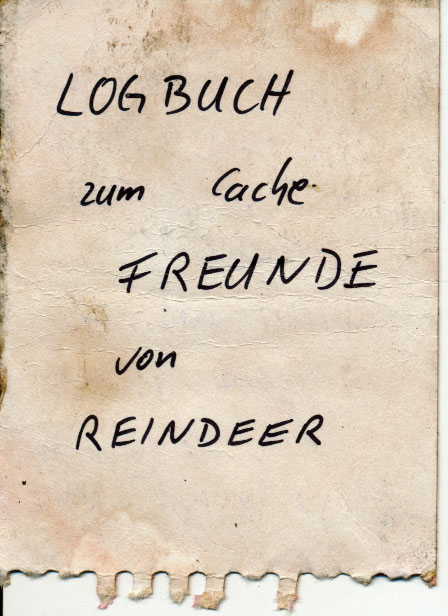 LOGBUCH
zum Cache
FREUNDE
von
REINDEER